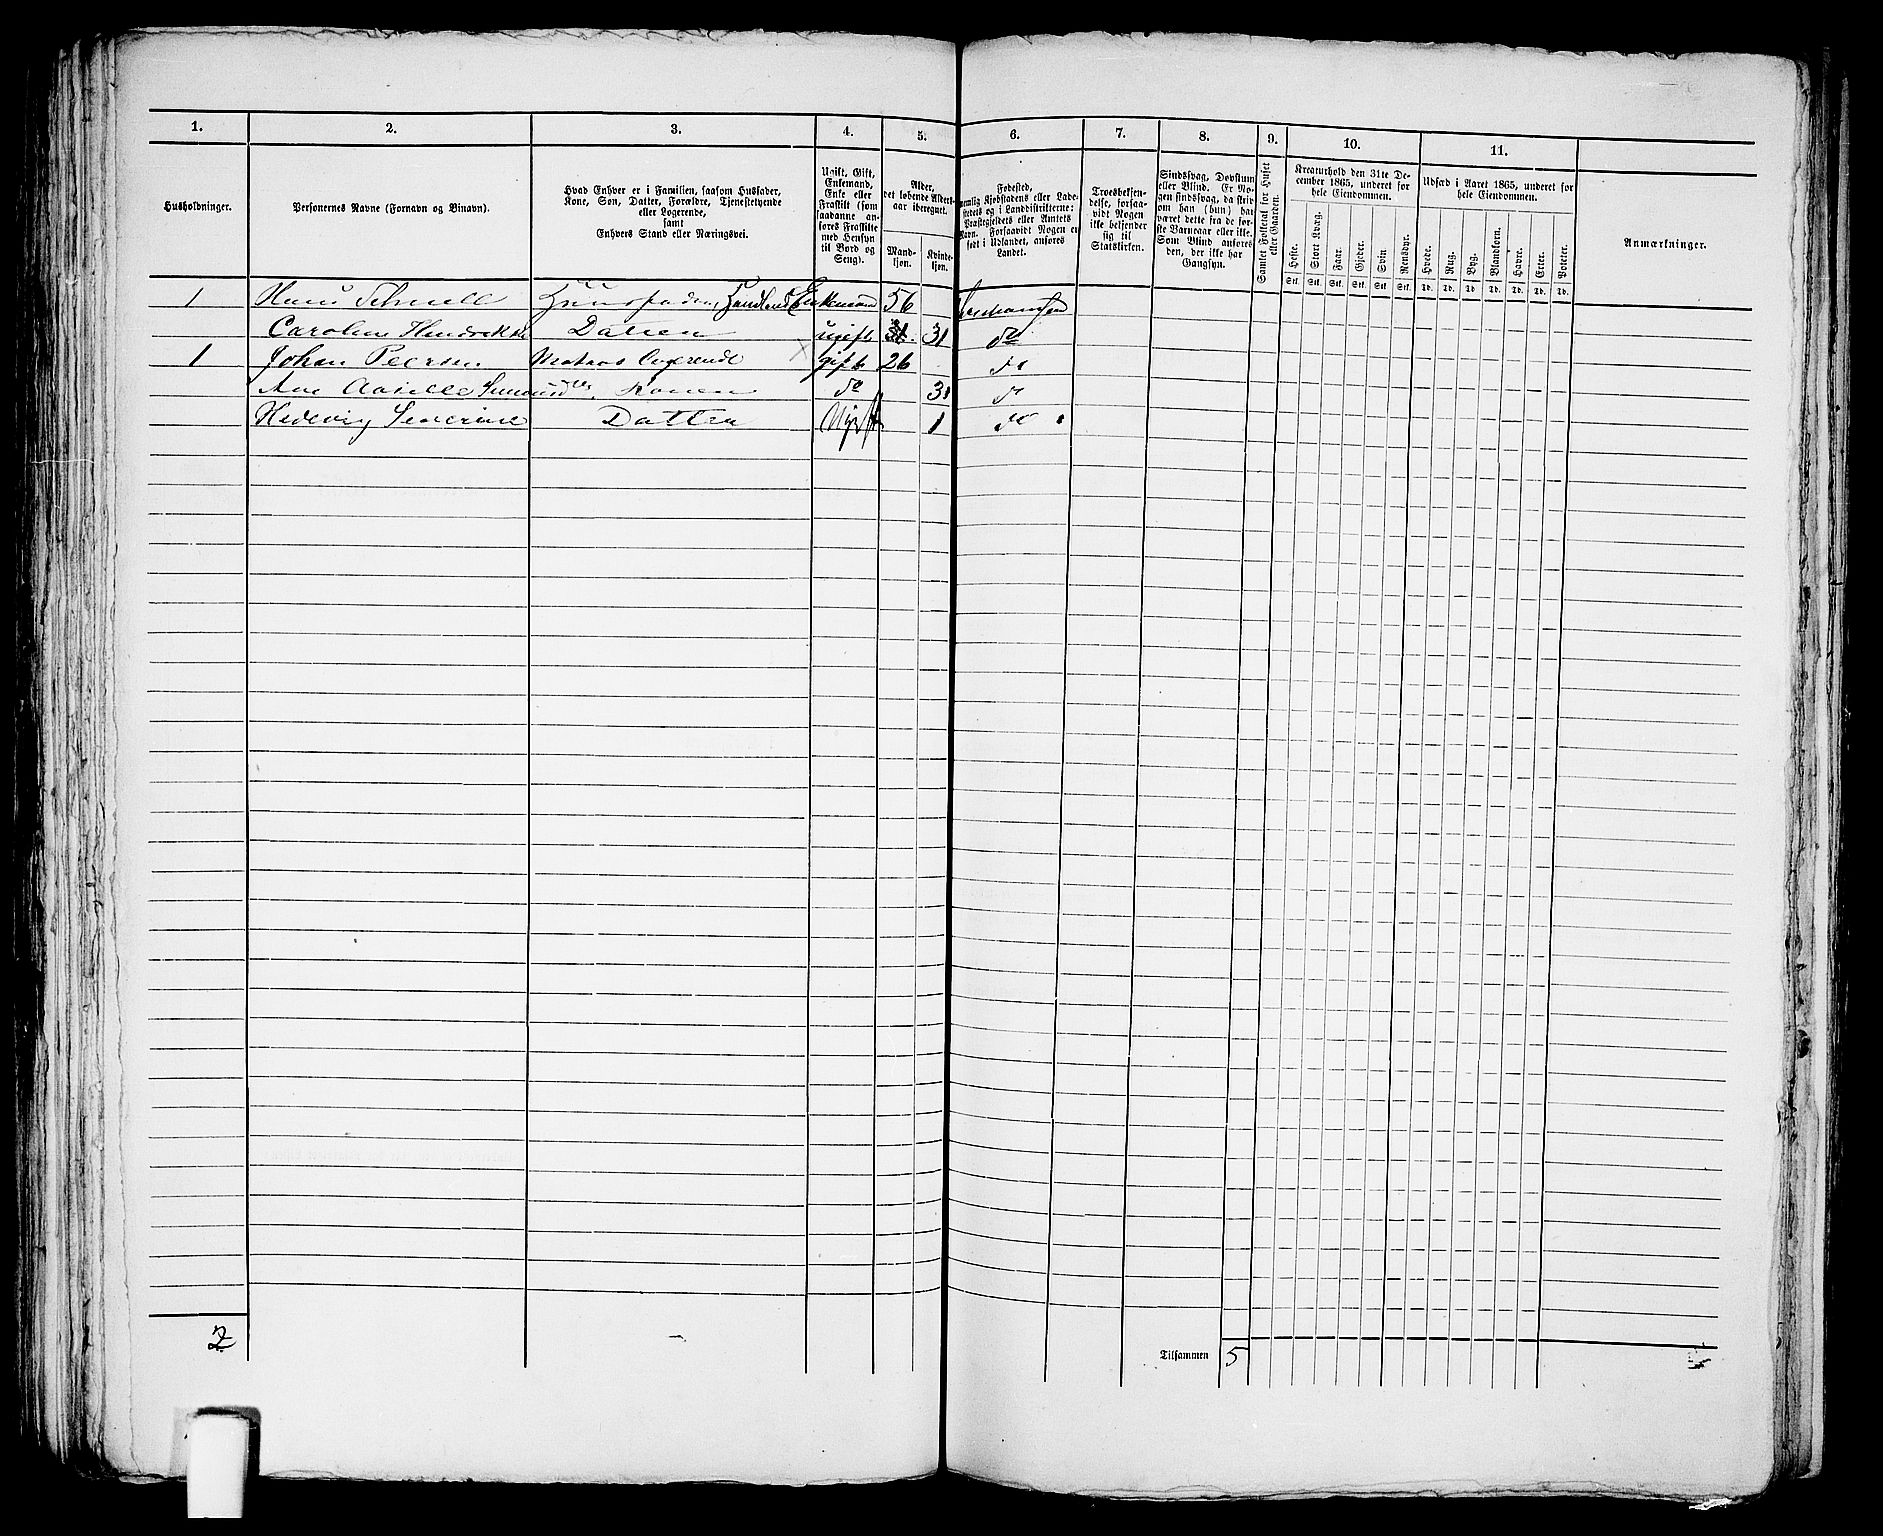 1. 2. 3. 4. 5. 6. 7. 8. 9. 10. 11.
Husholdninger.
Personernes Navne (Fornavn og Binavn).
Hvad Enhver er i Familien, saasom Husfader,
Kone, Søn, Datter, Forældre, Tjenestetyende
eller Logerende,
samt
Enhvers Stand eller Næringsvei.
Ugift, Gift,
Enkemand,
Enke eller
Fraskilt (som
saadanne an-
føres Fraskilte
med Hensyn
til Bord og
Seng).
Alder,
det løbende Alders-
aar iberegnet.
Mand-
kjøn.
Kvinde-
kjøn.
Fødested,
nemlig Kjøbstadens eller Lade-
stedets og i Landdistrikterne:
Præstegjeldets eller Amtets
Navn. Forsaavidt Nogen er
født i Udlandet, anføres
Landet.
Troesbekjen-
delse, forsaa-
vidt Nogen
ikke bekjender
sig til
Statskirken.
Sindssvag, Døvstum
eller Blind. Er No-
gen sindssvag, da skriv
om han (hun) har
været dette fra de før-
ste Barneaar eller ikke.
Som Blind anføres
den, der ikke har
Gangsyn.
Samlet Folketal for Huset
eller Gaarden.
Kreaturhold den 31te De-
cember 1865, underet for
hele Eiendommen.
Heste. Stort Kvæg. Faar. Gjeder. Svin. Rensdyr.
Stk. Stk. Stk. Stk. Stk. Stk.
Udsæd i Aaret 1865, underet for
hele Eiendommen.
Hvede. Rug. Byg. Blandkorn. Havre. Erter. Poteter.
Td. Td. Td. Td. Td. Td. Td.
Anmærkninger.
1 Hans Schnell Huusfader, Enkemand 56
Caroline Hendrekke Datter ugift 31 do
1 Johan Peersen Matros Logerende gift 26 do
Ane Konen do 31 do
Hedevig Severine Datter Ugift 1 do
2
Tilsammen 5